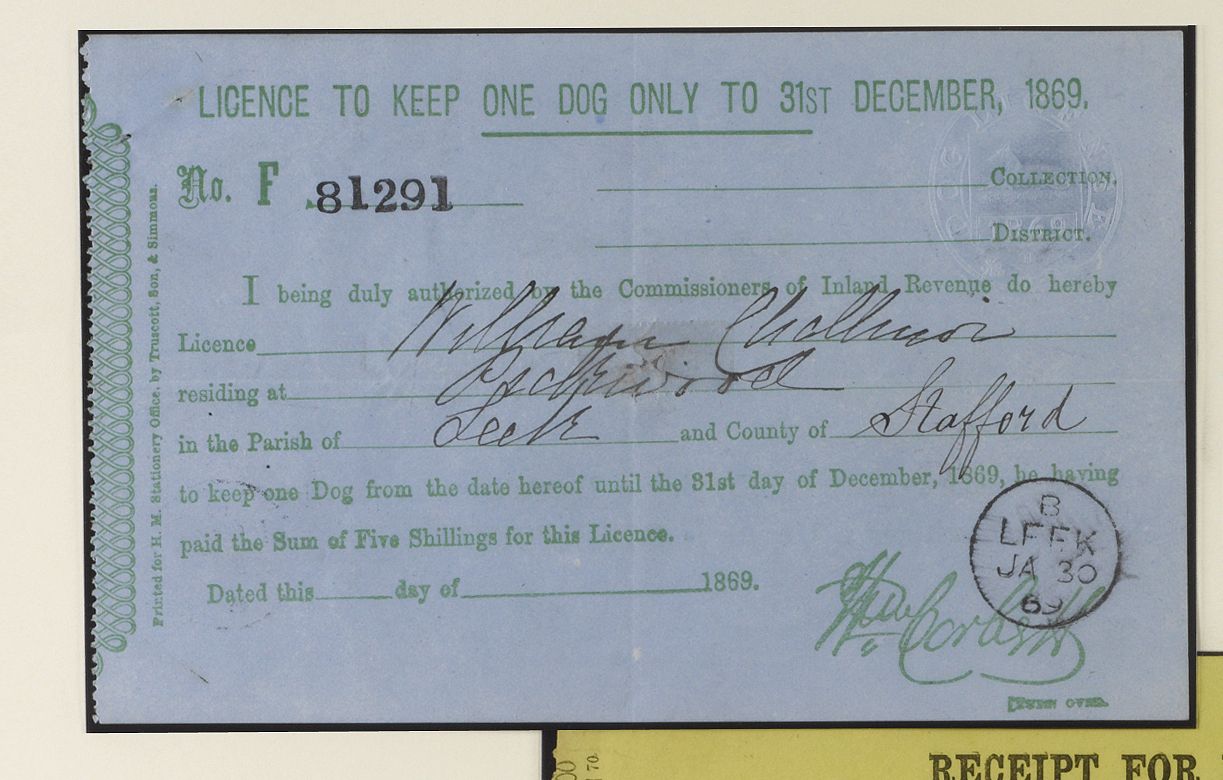 LICENCE TO KEEP ONE DOG ONLY TO 31ST DECEMBER, 1869.
No. F 81291
COLLECTION.
DISTRICT.
1869
I being duly authorized by the Commissioners of Inland Revenue do hereby
Licence William
residing at
in the Parish of Leek and County of Stafford
to keep one Dog from the date hereof until the 31st day of December, 1869, he having
paid the Sum of Five Shillings for this Licence.
Dated this day of 1869.
B
LEEK
JA 30
69
Printed for H. M. Stationery Office, by Truscott, Son, & Simmons.
RECEIPT FOR
70